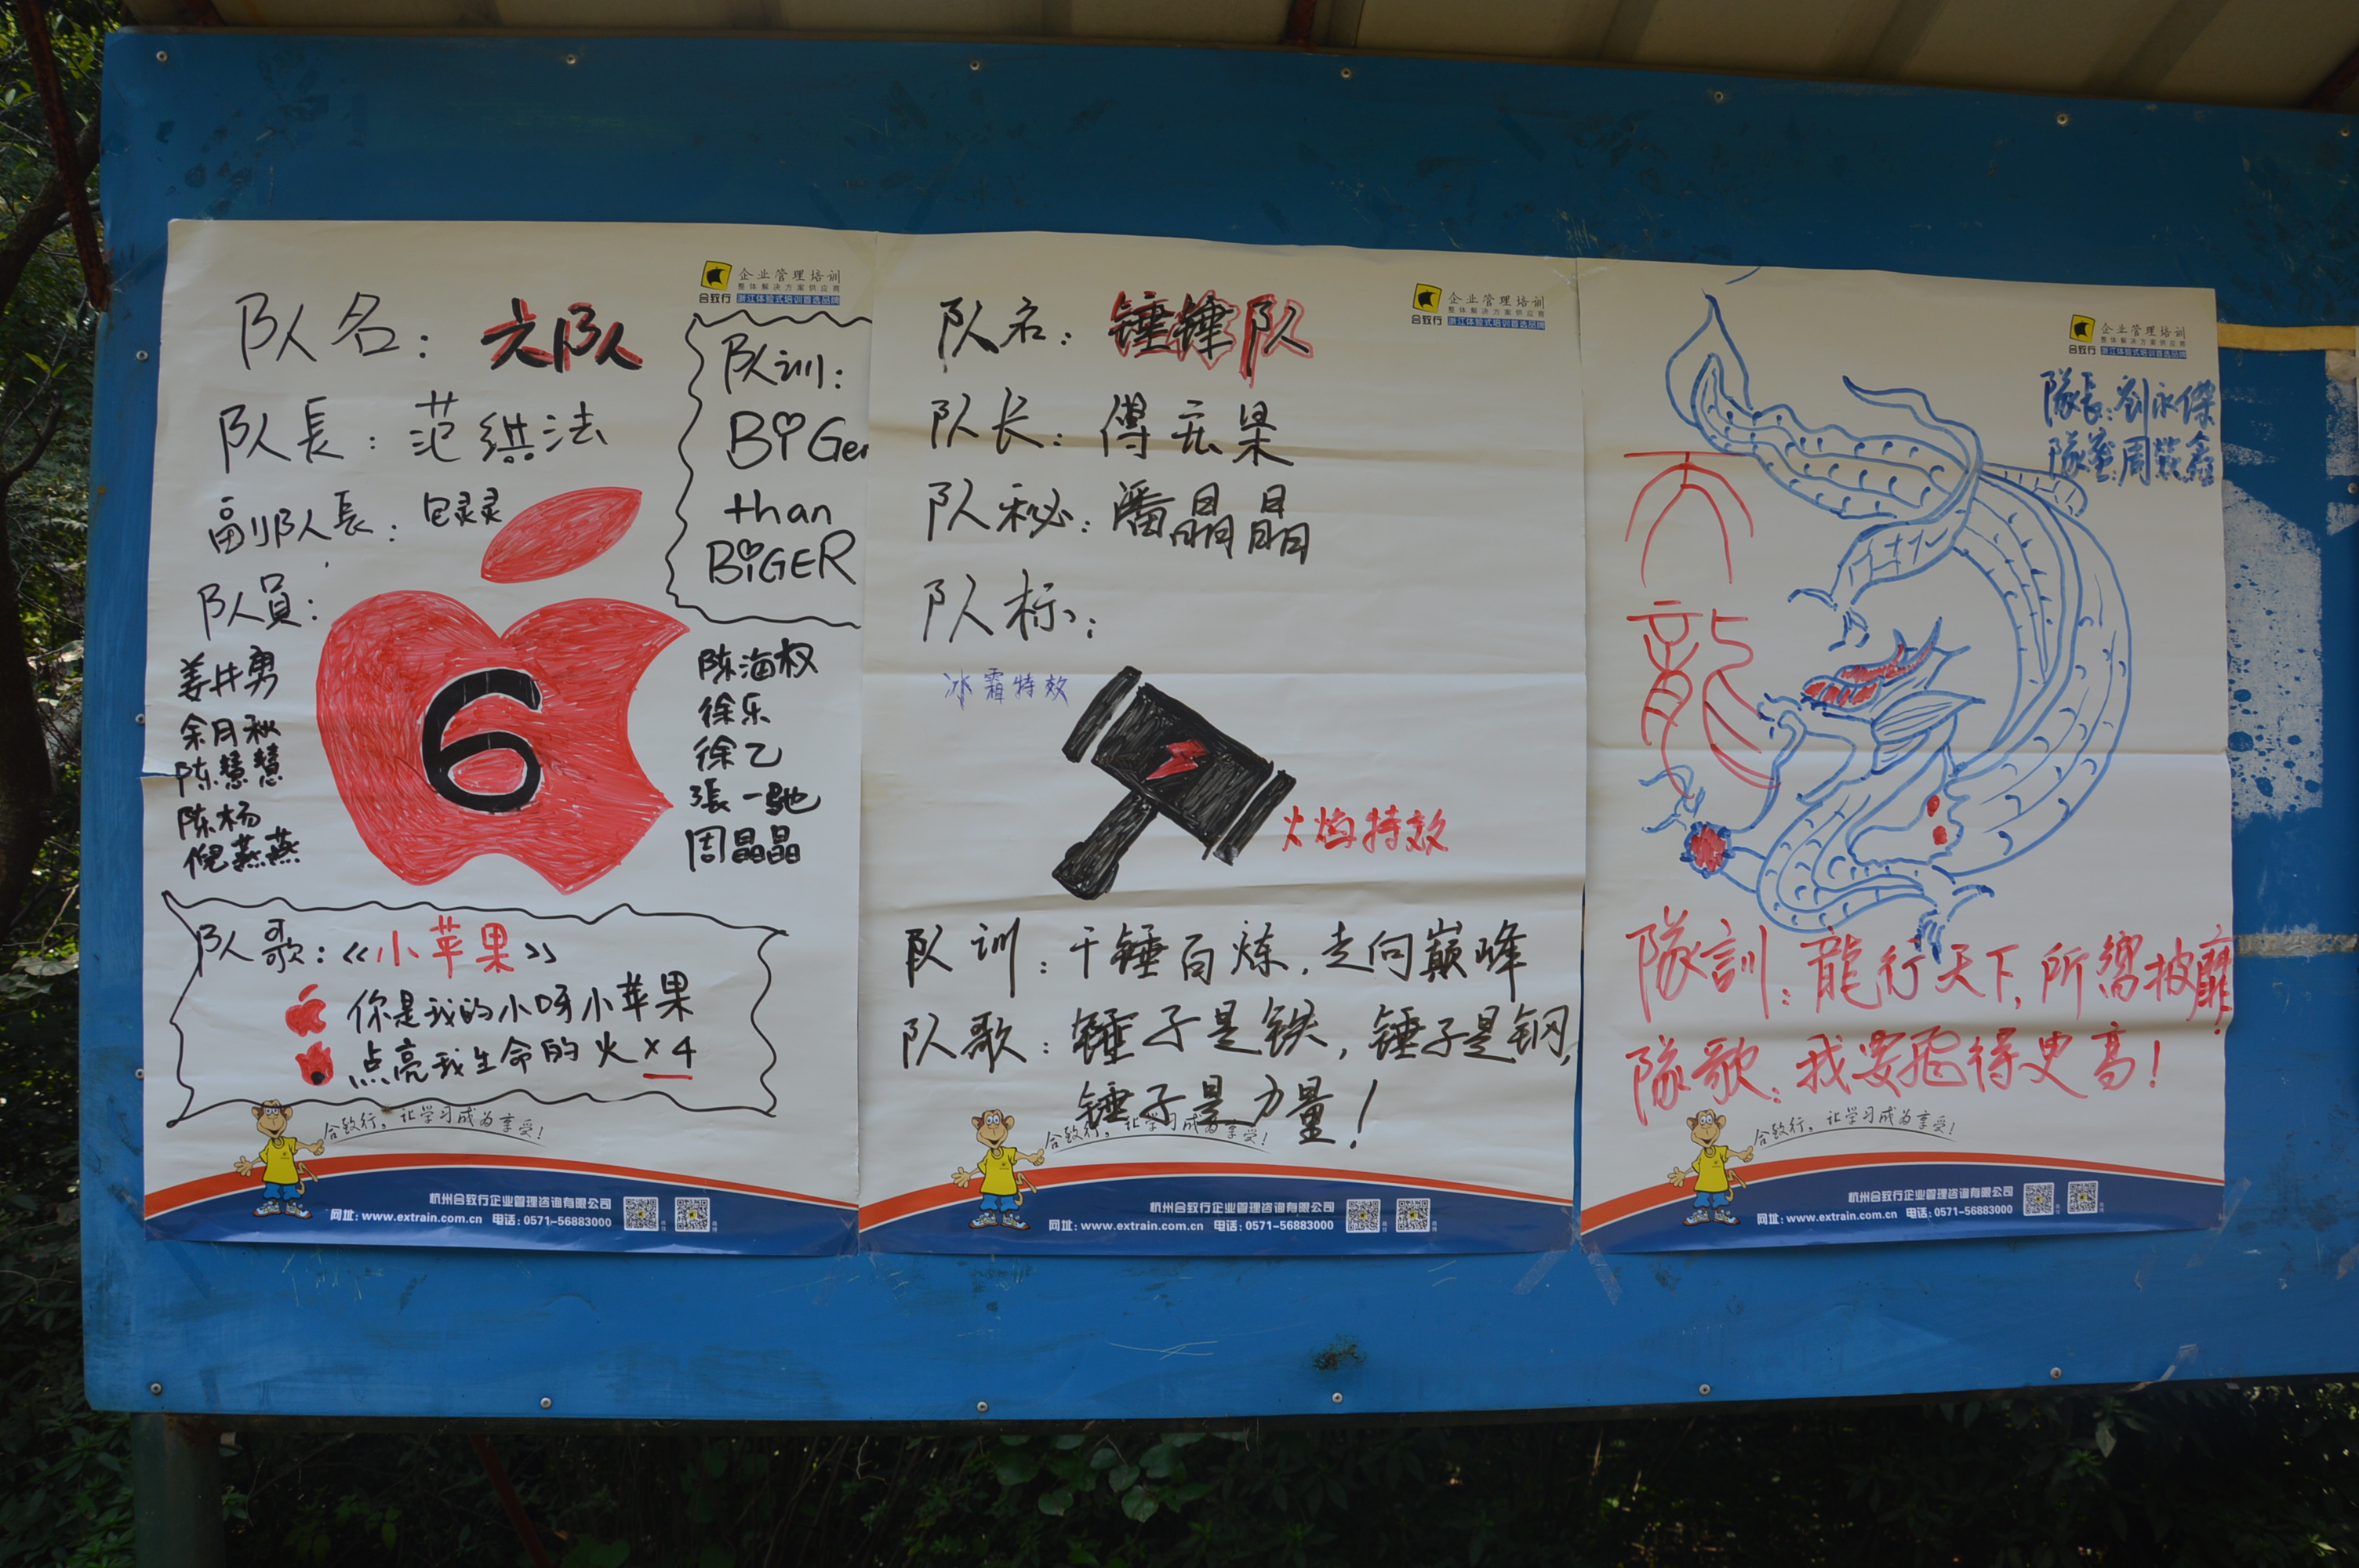 企业管理培训
整体解决方案供应商
合致行 浙江体验式培训首选品牌
队名：六队
队長：范洪法
副队長：包灵灵
队員：
姜井勇
余月秋
陈慧慧
陈杨
倪燕燕
队训：
BiGer
than
BiGER
陈海权
徐乐
徐乙
張一驰
周晶晶
6
队歌：《小苹果》
你是我的小呀小苹果
点亮我生命的火×4
合致行，让学习成为享受！
杭州合致行企业管理咨询有限公司
网址：www.extrain.com.cn 电话：0571-56883000
企业管理培训
整体解决方案供应商
合致行 浙江体验式培训首选品牌
队名：锤锤队
队长：傅云果
队秘：潘晶晶
队标：
冰霜特效
火焰特效
队训：千锤百炼，走向巅峰
队歌：锤子是铁，锤子是钢，
锤子是力量！
合致行，让学习成为享受！
杭州合致行企业管理咨询有限公司
网址：www.extrain.com.cn 电话：0571-56883000
企业管理培训
整体解决方案供应商
合致行 浙江体验式培训首选品牌
隊長：劉永傑
周
天龍
隊訓：龍行天下，所嚮披靡
隊歌：我要飛得更高！
合致行，让学习成为享受！
杭州合致行企业管理咨询有限公司
网址：www.extrain.com.cn 电话：0571-56883000